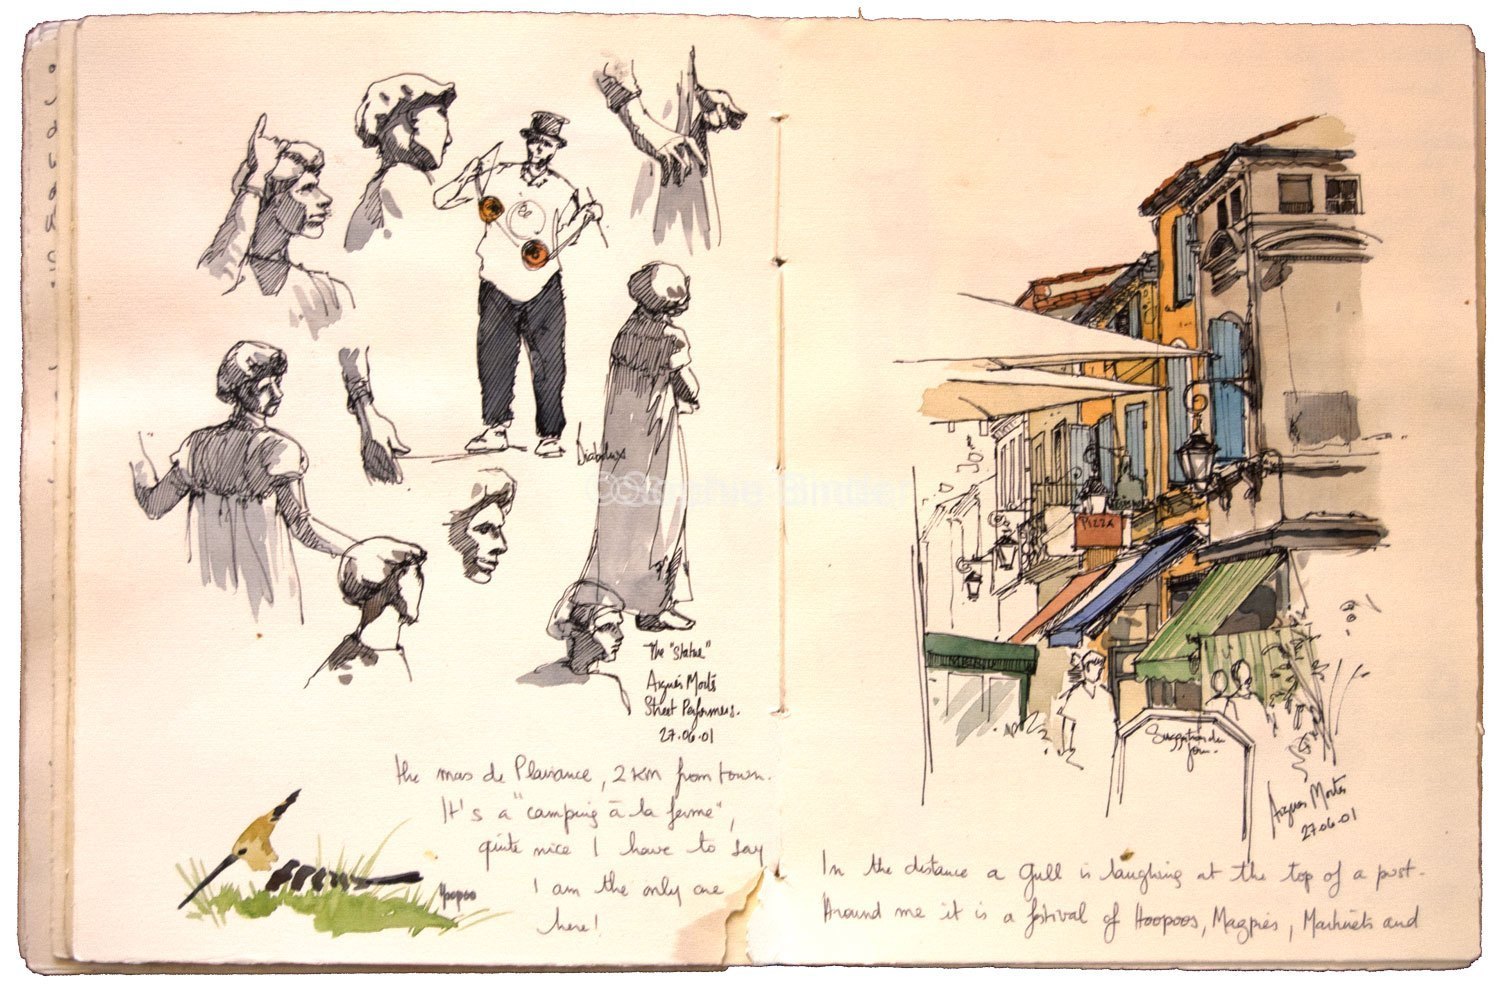 Diabolux
The "Statue"
Aigues Mortes
Street Performers.
27.06.01
the mas de Plaisance, 2 km from town.
It's a "camping à la ferme",
quite nice I have to say
I am the only one
here!
Hoopoo
PIZZA
Suggestion du
jour.
Aigues Mortes
27.06.01
In the distance a Gull is laughing at the top of a post.
Around me it is a festival of Hoopoos, Magpies, Martinets and